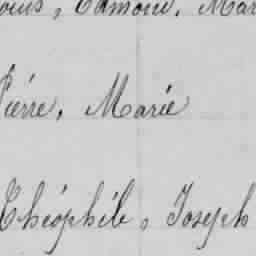 Louis, Edmond, Mar
Pierre, Marie
Théophile, Joseph